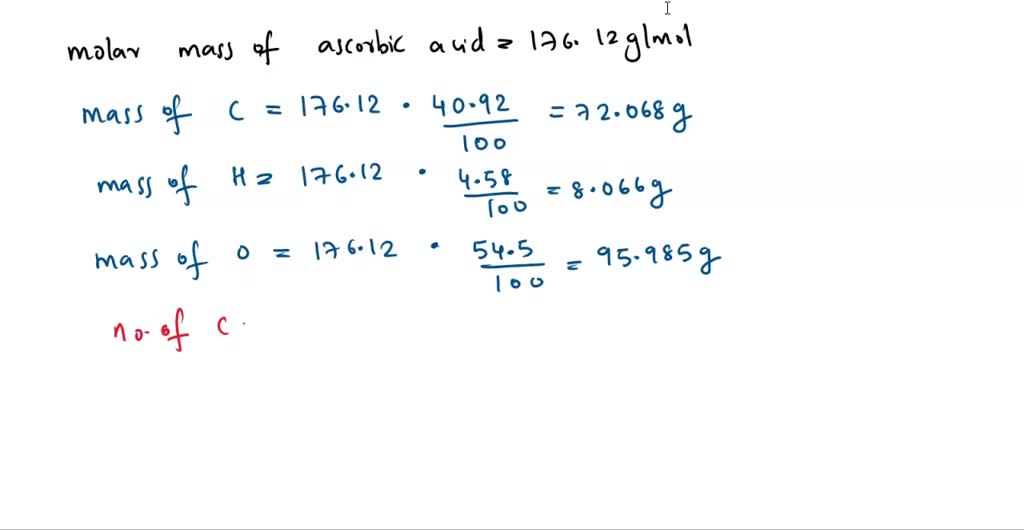 molar mass of ascorbic acid = 176.12 g/mol
mass of C = 176.12 · 40.92/100 = 72.068 g
mass of H = 176.12 · 4.58/100 = 8.066 g
mass of O = 176.12 · 54.5/100 = 95.985 g
no. of C